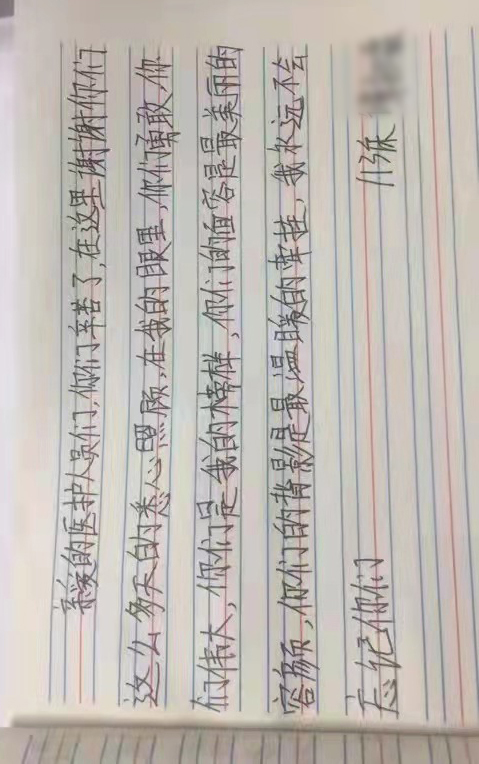 亲爱的医护人员们，你们辛苦了，在这里谢谢你们
这么多天的悉心照顾，在我的眼里，你们勇敢，你
们伟大，你们是我的榜样，你们的面容是最美丽的
容颜，你们的背影是最温暖的牵挂，我永远不会
忘记你们
11张